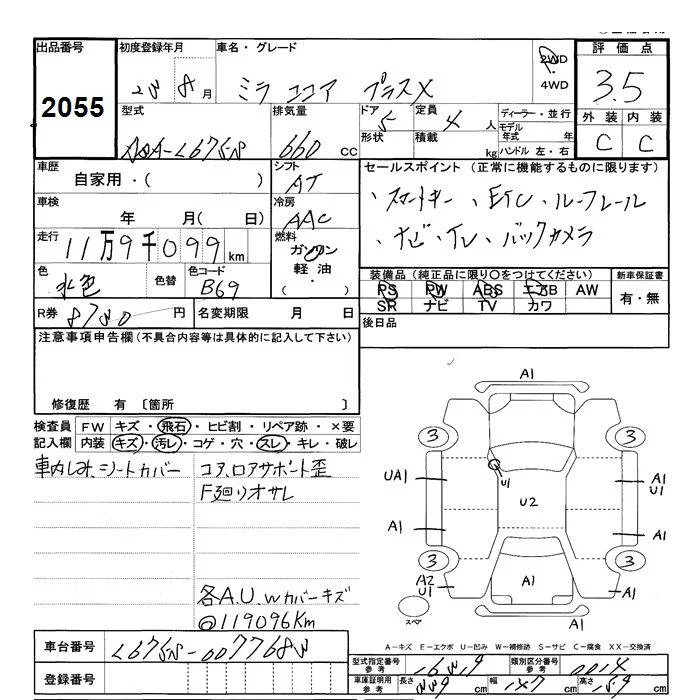 出品番号 初度登録年月 車名・グレード 評価点
2055 23 8月 ミラ ココア プラスX 2WD 4WD 3.5
型式 排気量 ドア 5 定員 4人 ディーラー・並行 外装 内装
660 cc 形状 積載 kg モデル年式 年 ハンドル 左・右 C C
車歴 自家用・( ) シフト AT セールスポイント (正常に機能するものに限ります)
車検 年 月( 日) 冷房 AAC 、スマートキー、ETC、ルーフレール
走行 11万9千099km 燃料 ガソリン 軽油 ・( ) 、ナビ、TV、バックカメラ
色 水色 色替 色コード B69 装備品 (純正品に限り○をつけてください) 新車保証書
PS PW ABS エアB AW 有・無
SR ナビ TV カワ
R券 円 名変期限 月 日 後日品
注意事項申告欄 (不具合内容等は具体的に記入して下さい)
修復歴 有 〔箇所 〕
検査員 FW キズ・飛石・ヒビ割・リペア跡・×要
記入欄 内装 キズ・汚レ・コゲ・穴・スレ・キレ・破レ
車内しみ、シートカバー コア、ロアサポート歪
F廻りオサレ
各A.U.Wカバーキズ
119096Km
A1
3 3
U1
UA1 U2 A1 U1
A1 A1
3 3
A2 U1 A1 A1
スペア A1
A-キズ E-エクボ U-凹み W-補修跡 S-サビ C-腐食 XX-交換済
車台番号 型式指定番号 参考 類別区分番号 参考 0014
登録番号 車庫証明用 参考 長さ cm 幅 147 cm 高さ cm